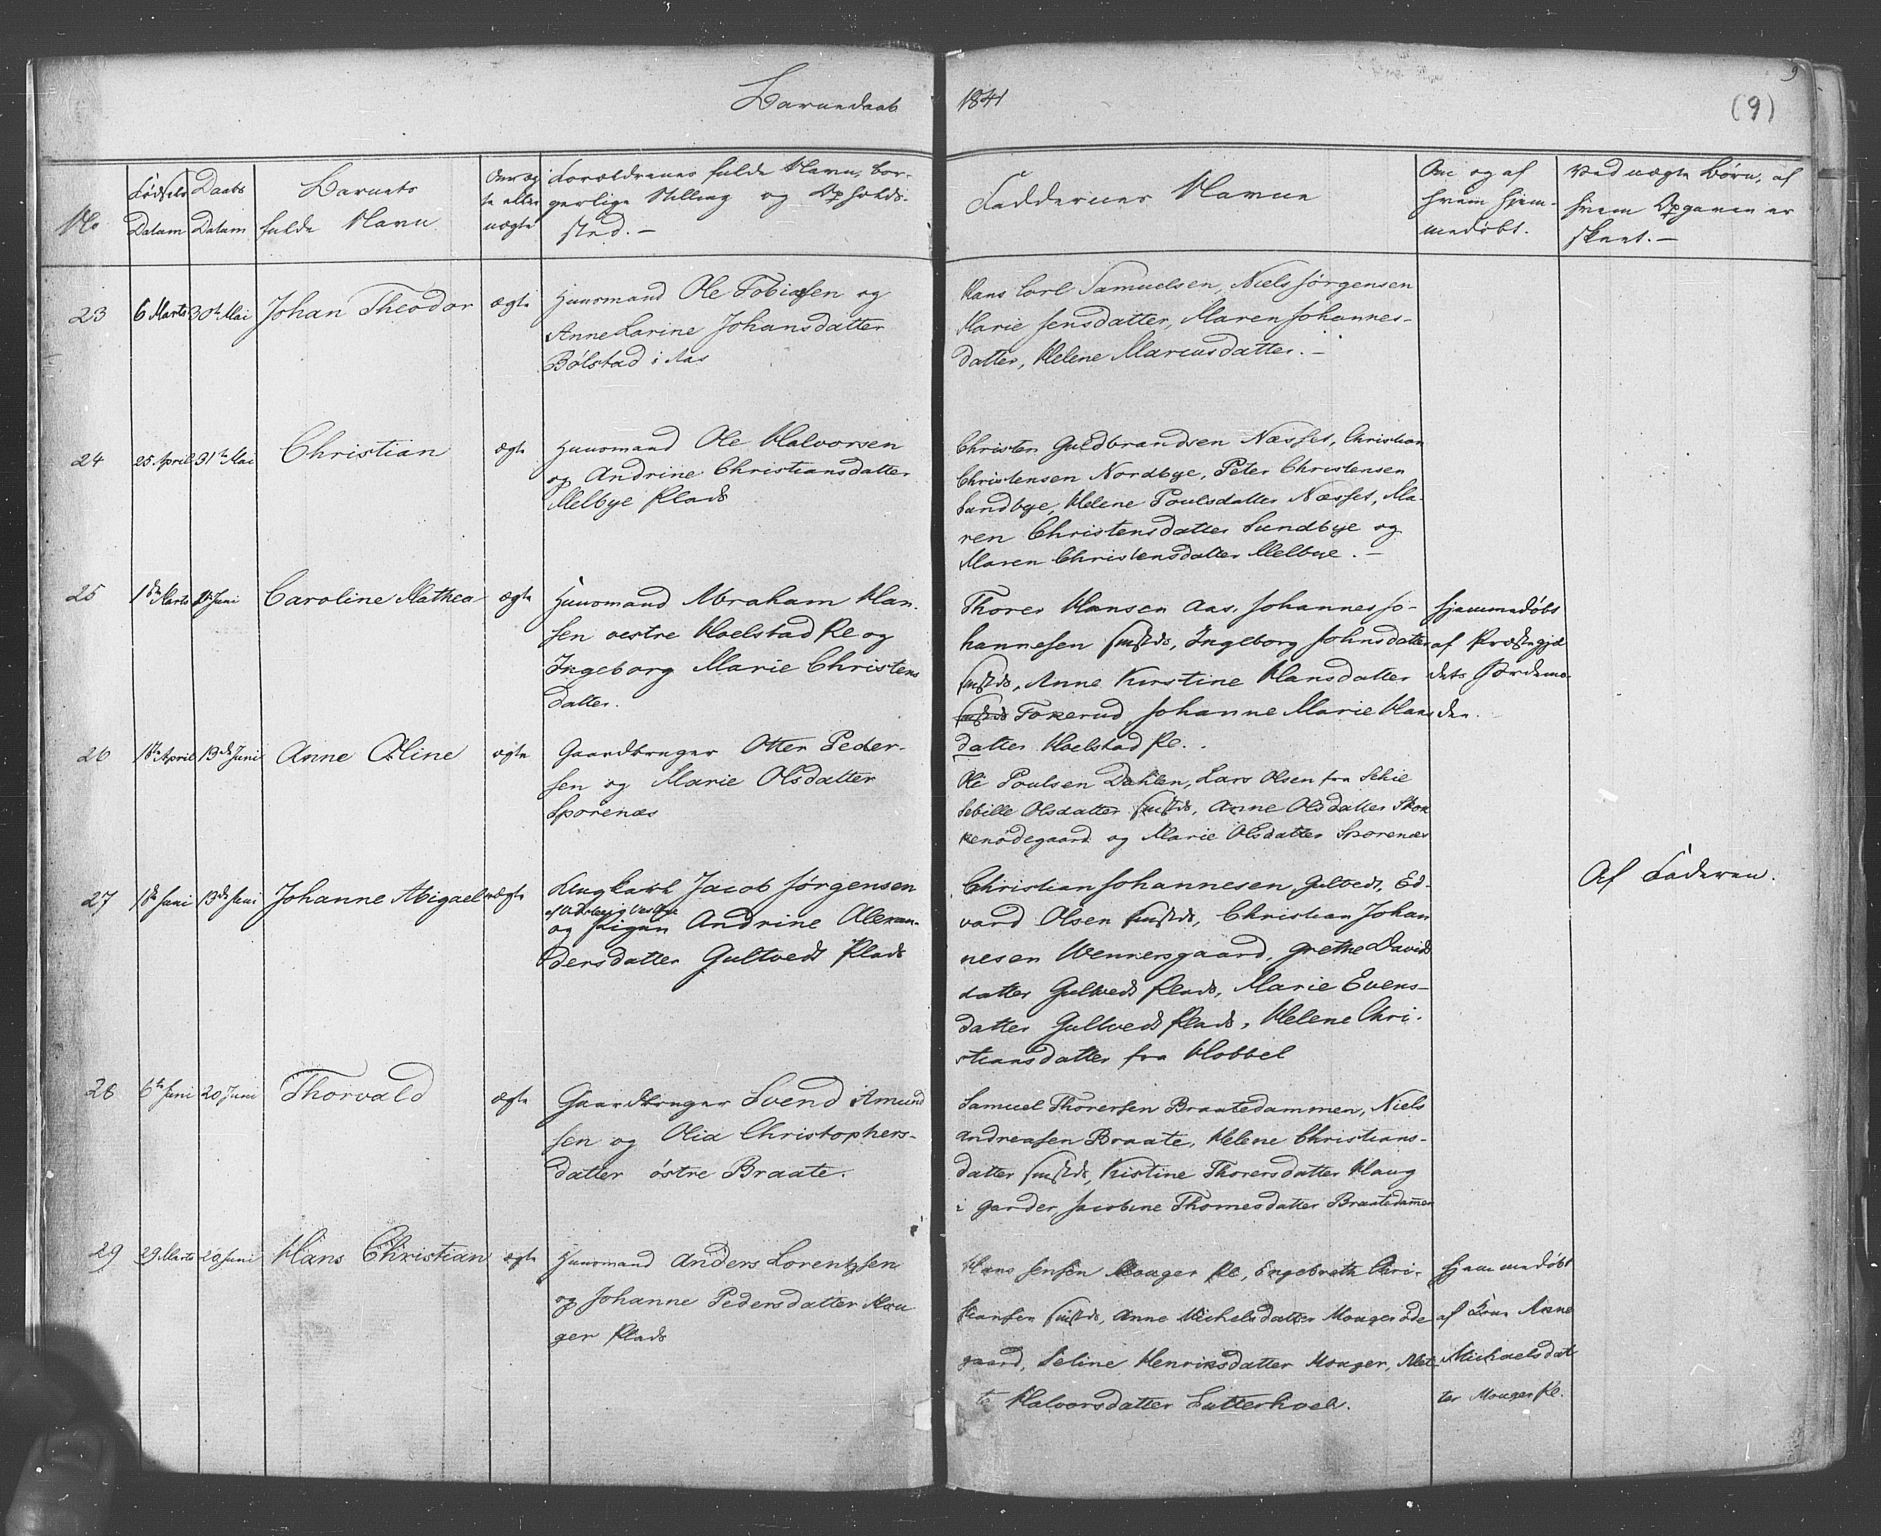 Barnedaab 1841
9
(9)
No
Fødsels Datum
Daabs Datum
Barnets fulde Navn
Om ægte eller uægte
Forældrenes fulde Navn, bor-
gerlige Stilling og Opholds-
sted. —
Faddernes Navne
Om og af
hvem hjem-
medøbt.
Ved uægte Børn, af
hvem Opgaven er
skeet. —
23
6 Marts
30te Mai
Johan Theodor
ægte
Huusmand Ole Tobiasen og
Anne Karine Johansdatter
Bølstad i Aas
Hans Carl Samuelsen, Niels Jørgensen
Marie Jensdatter, Maren Johannes-
datter, Helene Marcusdatter. —
24
25 April
31te Mai
Christian
ægte
Huusmand Ole Halvorsen
og Andrine Christiansdatter
Melbye Plads
Christen Guldbrandsen Næsset, Christian
Christensen Nordbye, Peter Christensen
Sundbye, Helene Poulsdatter Næsset, Ma-
ren Christensdatter Sundbye og
Maren Christensdatter Melbye. —
25
1ste Marts
Juni
Caroline Mathea
ægte
Huusmand Abraham Han-
sen vestre Hoelstad Pl og
Ingeborg Marie Christens
datter.
Thorer Hansen Aas, Johannes Jo-
hannesen sammesteds, Ingeborg Johnsdatter
sammesteds, Anne Kirstine Hansdatter
Tokerud, Johanne Marie Hans
datter Hoelstad Pl. .
hjemmedøbt
af Præstegjæl
dets Jordemo
der.
26
April
13de Juni
Anne Oline
ægte
Gaardbruger Otter Peder-
sen og Marie Olsdatter
Sporenæs
Ole Poulsen Dahlen, Lars Olsen fra Schie
Sebille Olsdatter sammesteds, Anne Olsdatter Skok
kenødegaard og Marie Olsdatter Sporenæs
27
1ste Juni
13de Juni
Johanne Abigael
uægte
Ungkarl Jacob Jørgensen
og Pigen Andrine Alexan-
dersdatter Gultvedt Plads
Christian Johannesen Gultvedt, Ed-
vard Olsen sammesteds, Christian Johan
nesen Wennersgaard, Grethe Davids
datter Gultvedt Plads, Marie Evens-
datter Gultvedt Plads, Helene Chri-
stiansdatter fra Hobbel
Af Faderen.
28
6te Juni
20 Juni
Thorvald
ægte
Gaardbruger Svend Amund
sen og Olia Christophers-
datter østre Braate.
Samuel Thorersen Braatedammen, Niels
Andreasen Braate, Helene Christians-
datter sammesteds, Kistine Thorersdatter Haug
i Garder, Jacobine Thomesdatter Braatedammen
29
29 Marts
20 Juni
Hans Christian
ægte
Huusmand Anders Lorentzsen
og Johanne Pedersdatter Mou
ger Plads
Hans Jensen Mouger Pl, Engebreth Chri-
stiansen sammesteds, Anne Michelsdatter Mouger øde
gaard, Seline Henriksdatter Mouger, Met
te Halvorsdatter Sutterhoel.
hjemmedøbt
af Kone Anne
Michaelsdat
ter Mouger Pl.